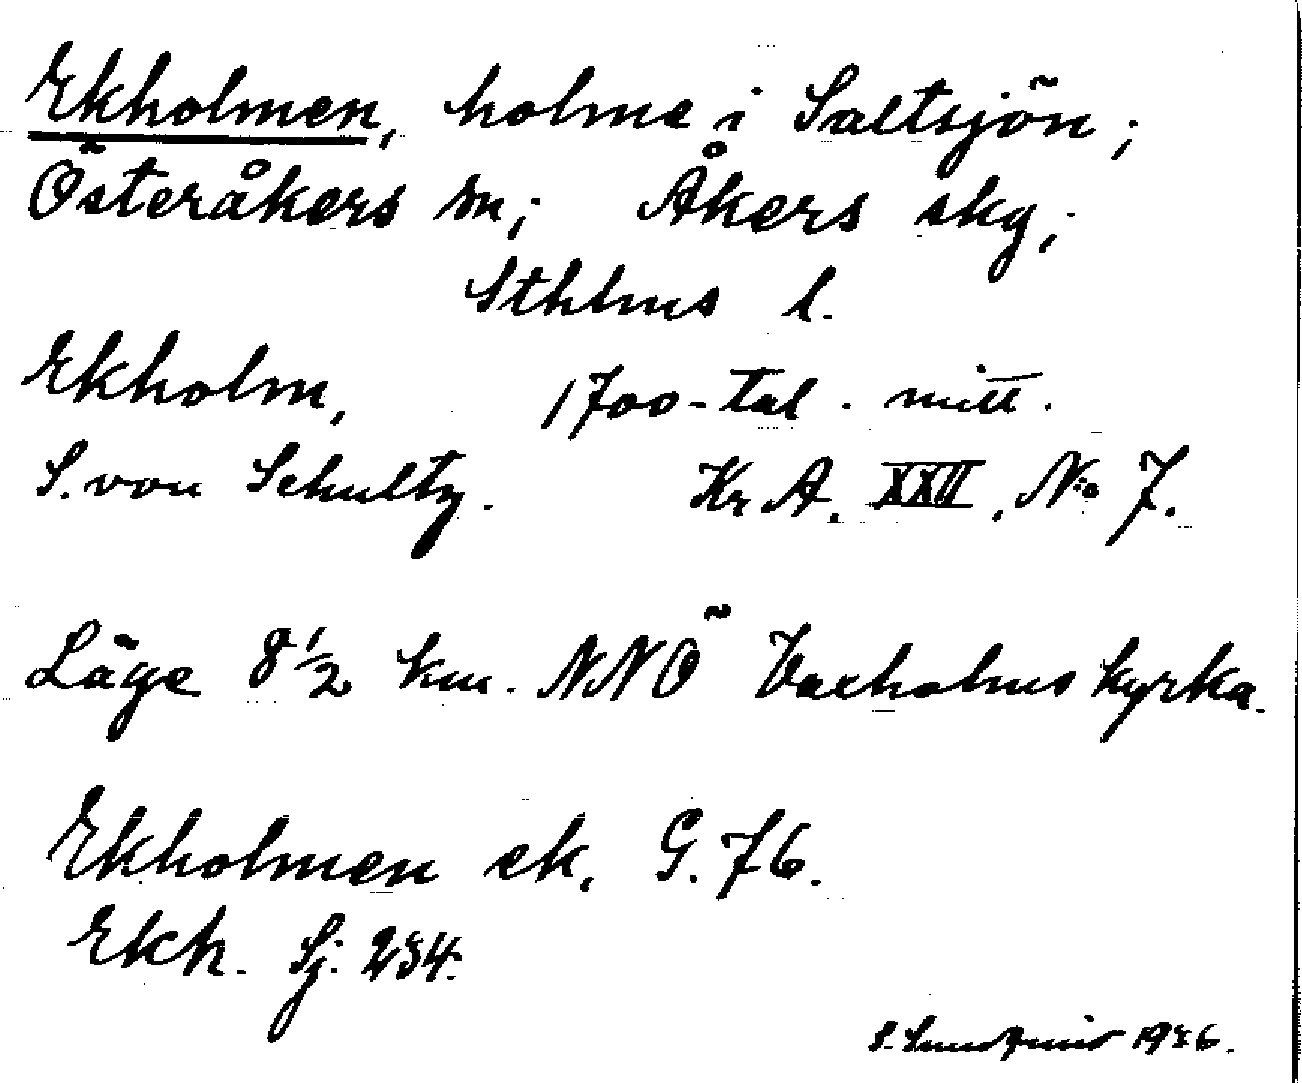 Ekholmen, holme i Saltsjön;
Österåkers sn; Åkers skg;
Sthlms l.
Ekholm, 1700-tal. mitt.
S. von Schultz. Kr A. XXII. No 7.
Läge 8 1/2 km. NNÖ Vaxholms kyrka.
Ekholmen ek. G. 76.
Ekh. Sj. 234.
S. 1936.